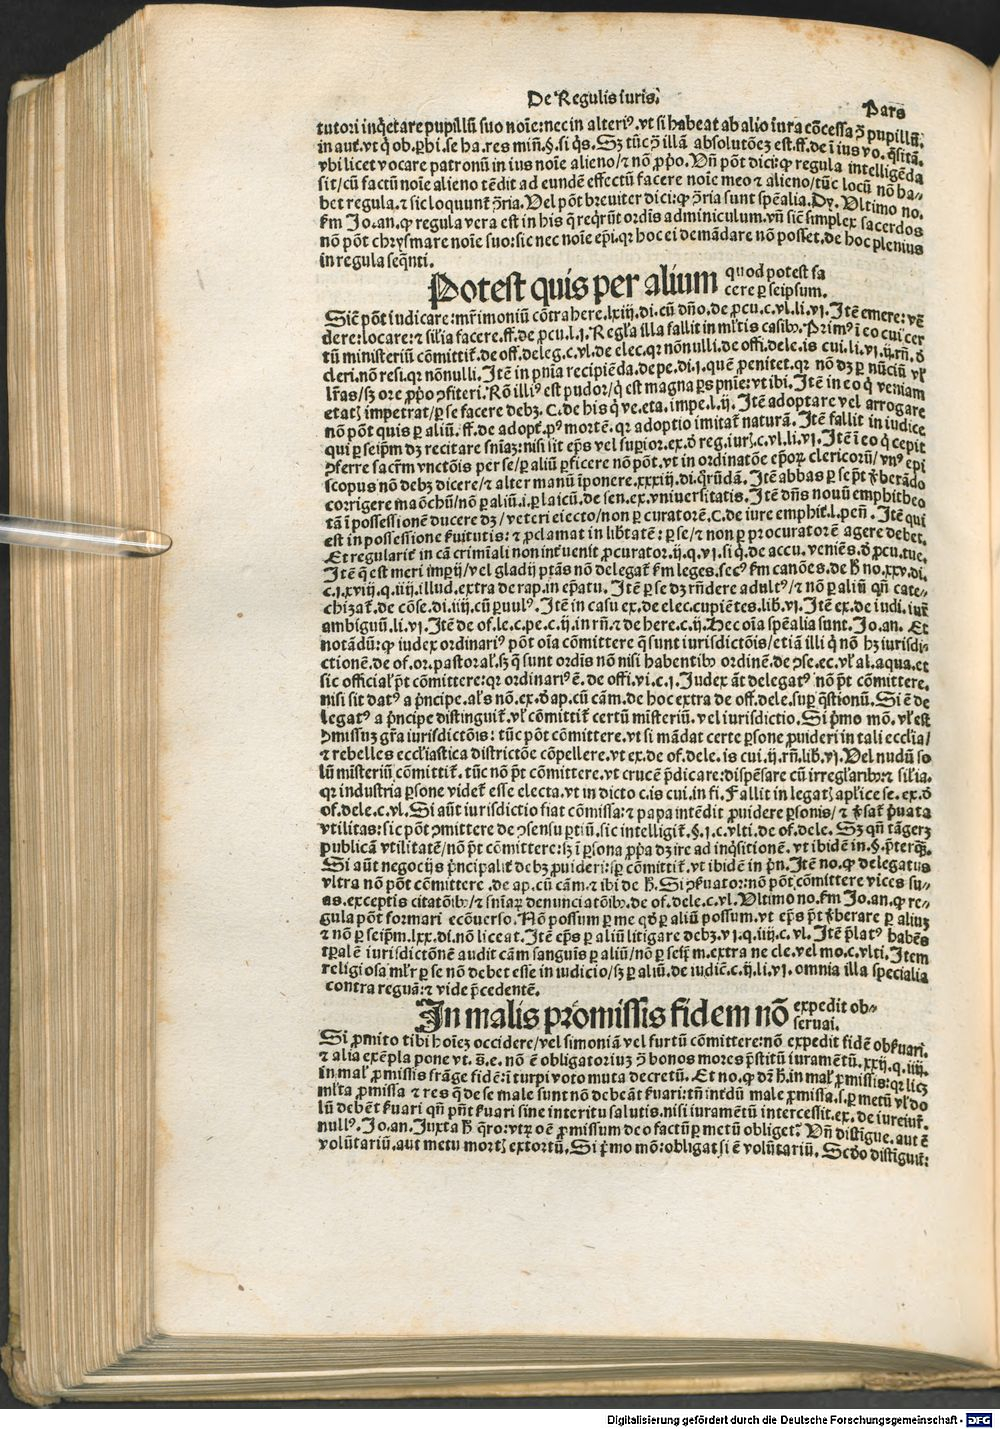 De Regulis iuris.
Pars
tutori inq̃etare pupillũ suo noĩe: nec in alteriꝰ. vt si habeat ab alio iura cõcessa ↄ̃ pupillũ.
in aut. vt q̃ ob. ꝑhi. se ha. res miñ. §. si q̃s. Sꝫ tũc ↄ̃ illã absolutõeꝫ est. ff. de ĩ ius vo. q̃sitã.
vbi licet vocare patronũ in ius noĩe alieno / ⁊ nõ ꝓp̃o. Vñ põt dici: ꝙ regula intelligẽda
sit / cũ factũ noĩe alieno tẽdit ad eundẽ effectũ facere noĩe meo ⁊ alieno / tũc locũ nõ ha-
bet regula. ⁊ sic loquunt̃ ↄ̃ria. Vel põt breuiter dici: ꝙ ↄ̃ria sunt spẽalia. Dy. Vltimo no.
ẜm Jo. an. ꝙ regula vera est in his q̃ req̃rũt ordĩs adminiculum. vñ sicẽ simplex sacerdos
nõ põt chrysmare noĩe suo: sic nec noĩe ep̃i. qꝛ hoc ei demãdare nõ posset. de hoc plenius
in regula seq̃nti.
Potest quis per alium quod potest fa
cere ꝑ seipsum.
Sicẽ põt iudicare: mr̃imoniũ cõtrahere. lxiij. di. cũ dño. de ꝓcu. c. vl. li. vj. Jtẽ emere: vẽ
dere: locare: ⁊ sil̃ia facere. ff. de ꝓcu. l. j. Regl̃a illa fallit in ml̃tis casibꝫ. Primꝰ ĩ eo cui cer
tũ ministeriũ cõmittit̃. de off. deleg. c. vl. de elec. qꝛ nõnulli. de offi. dele. is cui. li. vj. ij. rñ. ð
cleri. nõ resi. qꝛ nõnulli. Jtẽ in pñia recipiẽda. de pe. di. j. quẽ penitet. qꝛ nõ dꝫ ꝑ nũciũ vl̃
lr̃as / sꝫ ore ꝓp̃o ↄfiteri. Rõ illiꝰ est pudor / q̃ est magna ꝑs pñie: vt ibi. Jtẽ in eo q̃ veniam
etatis impetrat / ꝑ se facere debꝫ. C. de his q̃ ve. eta. impe. l. ij. Jtẽ adoptare vel arrogare
nõ põt quis ꝑ aliũ. ff. de adopt̃. pꝰ mortẽ. qꝛ adoptio imitat̃ naturã. Jtẽ fallit in iudice
qui ꝑ seip̃m dꝫ recitare sñiaꝫ: nisi sit ep̃s vel supior. ex. ð reg. iur. c. vl. li. vj. Jtẽ ĩ eo q̃ cepit
ↄferre sacr̃m vnctõis per se / ꝑ aliũ ꝑficere nõ põt. vt in ordinatõe ep̃oꝝ clericorũ / vnꝰ epi
scopus nõ debꝫ dicere / ⁊ alter manũ ĩponere. xxxiij. di. q̃rũdã. Jtẽ abbas ꝑ se p̃t v̓berãdo
corrigere maõchũ / nõ ꝑ aliũ. i. ꝑ laicũ. de sen. ex. vniuersitatis. Jtẽ dñs nouũ emphitheo
tã ĩ possessionẽ ducere dꝫ / veteri eiecto / non ꝑ curatorẽ. C. de iure emphit̃. l. peñ. Jtẽ qui
est in possessione ẜuitutis: ⁊ ꝓclamat in lib̃tatẽ: ꝑ se / ⁊ non ꝑ procuratorẽ agere debet.
Et regularit̃ in cã crimĩali non int̃uenit ꝓcurator. ij. q. vj. si q̃. de accu. veniẽs. ð ꝓcu. tue.
Jtẽ q̃ est meri imꝑij / vel gladij ptãs nõ delegat̃ ẜm leges. secꝰ ẜm canões. de h̃ no. xxv. di.
c. j. xviij. q. iiij. illud. extra de rap. in ep̃atu. Jtẽ ꝑ se dꝫ rñdere adultꝰ / ⁊ nõ ꝑ aliũ qñ cate-
chizat̃. de cõse. di. iiij. cũ ꝑuulꝰ. Jtẽ in casu ex. de elec. cupiẽtes. lib. vj. Jtẽ ex. de iudi. iur̃
ambiguũ. li. vj. Jtẽ de of. le. c. pe. c. ij. in rñ. ⁊ de here. c. ij. Hec oĩa spẽalia sunt. Jo. an. Et
notãdũ: ꝙ iudex ordinariꝰ põt oĩa cõmittere q̃ sunt iurisdictõis / etiã illi q̃ nõ hꝫ iurisdi-
ctionẽ. de of. or. pastoral̃. sꝫ q̃ sunt ordĩs nõ nisi habentibꝫ ordinẽ. de ↄse. ec. vl̃ al. aqua. et
sic official̃ p̃t cõmittere: qꝛ ordinariꝰ ẽ. de offi. vi. c. j. Judex ãt delegatꝰ nõ p̃t cõmittere.
nisi sit datꝰ a p̃ncipe. al̃s nõ. ex. ð ap. cũ cãm. de hoc extra de off. dele. sup q̃stionũ. Si ẽ de
legatꝰ a p̃ncipe distinguit̃. vl̃ cõmittit̃ certũ misteriũ. vel iurisdictio. Si p̃mo mõ. vl̃ est
ↄmissuꝫ gr̃a iurisdictõis: tũc põt cõmittere. vt si mãdat certe ꝑsone ꝓuideri in tali eccl̃ia /
⁊ rebelles eccl̃iastica districtõe cõpellere. vt ex. de of. dele. is cui. ij. rñ. lib. vj. Vel nudũ so
lũ mĩsteriũ cõmittit̃. tũc nõ p̃t cõmittere. vt crucẽ p̃dicare: dispẽsare cũ irregl̃aribꝫ: ⁊ sil̃ia.
qꝛ industria ꝑsone videt̃ esse electa. vt in dicto c. is cui. in fi. Fallit in legatis ap̃lice se. ex. ð
of. dele. c. vl. Si aũt iurisdictio fiat cõmissa: ⁊ papa intẽdit ꝓuidere ꝑsonis / ⁊ v̓sat̃ p̃uata
vtilitas: sic põt ↄmittere de ↄsensu ꝑtiũ. sic intelligit̃. §. j. c. vlti. de of. dele. Sꝫ qñ tãgerꝫ
publicã vtilitatẽ / nõ p̃t cõmittere: sꝫ ĩ ꝑsona ꝓp̃a dꝫ ire ad inq̃sitionẽ. vt ibidẽ in. §. p̃terq̃ꝫ.
Si aũt negocijs p̃ncipalit̃ debꝫ ꝓuideri: sꝑ cõmittit̃. vt ibidẽ in p̃n. Jtẽ no. ꝙ delegatus
vltra nõ põt cõmittere. de ap. cũ cãm. ⁊ ibi de h̃. Si ↄẜuator: nõ põt cõmittere vices su-
as. exceptis citatõibꝫ / ⁊ sñiaꝝ denunciatõibꝫ. de of. dele. c. vl. Vltimo no. ẜm Jo. an. ꝙ re-
gula põt formari ecõuerso. Nõ possum ꝑ me qð ꝑ aliũ possum. vt ep̃s p̃t v̓berare ꝑ aliuꝫ
⁊ nõ ꝑ seip̃m. lxx. di. nõ liceat. Jtẽ ep̃s ꝑ aliũ litigare debꝫ. v. q. iiij. c. vl. Jtẽ p̃latꝰ habẽs
tp̃alẽ iurisdictõnẽ audit cãm sanguĩs ꝑ aliũ / nõ ꝑ seip̃m. extra ne cle. vel mo. c. vlti. Jtem
religiosa ml̃r ꝑ se nõ debet esse in iudicio / sꝫ ꝑ aliũ. de iudic̃. c. ij. li. vj. omnia illa specialia
contra reguã: ⁊ vide p̃cedentẽ.
Jn malis promissis fidem nõ expedit ob-
seruai.
Si ꝓmito tibi hoĩeꝫ occidere / vel simoniã vel furtũ cõmittere: nõ expedit fidẽ obẜuari.
⁊ alia exẽpla pone vt. s̃. e. nõ ẽ obligatoriuꝫ ↄ̃ bonos mores p̃stitũ iuramẽtũ. xxij. q. iiij.
in mal̃ ꝓmissis frãge fidẽ: ĩ turpi voto muta decretũ. Et no. ꝙ dr̃ h̃. in mal̃ ꝓmissis: qꝛ licꝫ
ml̃ta ꝓmissa ⁊ res q̃ de se male sunt nõ debeãt ẜuari: tñ: int̃dũ male ꝓmissa. s. ꝑ metũ vl̃ do
lũ debẽt ẜuari qñ pñt ẜuari sine interitu salutis. nisi iuramẽtũ intercessit. ex. de iureiur̃.
nullꝰ. Jo. an. Juxta h̃ q̃ro: vtꝝ oẽ ꝓmissum deo factũ ꝑ metũ obliget. Vñ distĩgue. aut ẽ
volũtariũ. aut metu mortis extortũ. Si p̃mo mõ: obligat si ẽ volũtariũ. Scðo distĩguit̃:
Digitalisierung gefördert durch die Deutsche Forschungsgemeinschaft - DFG